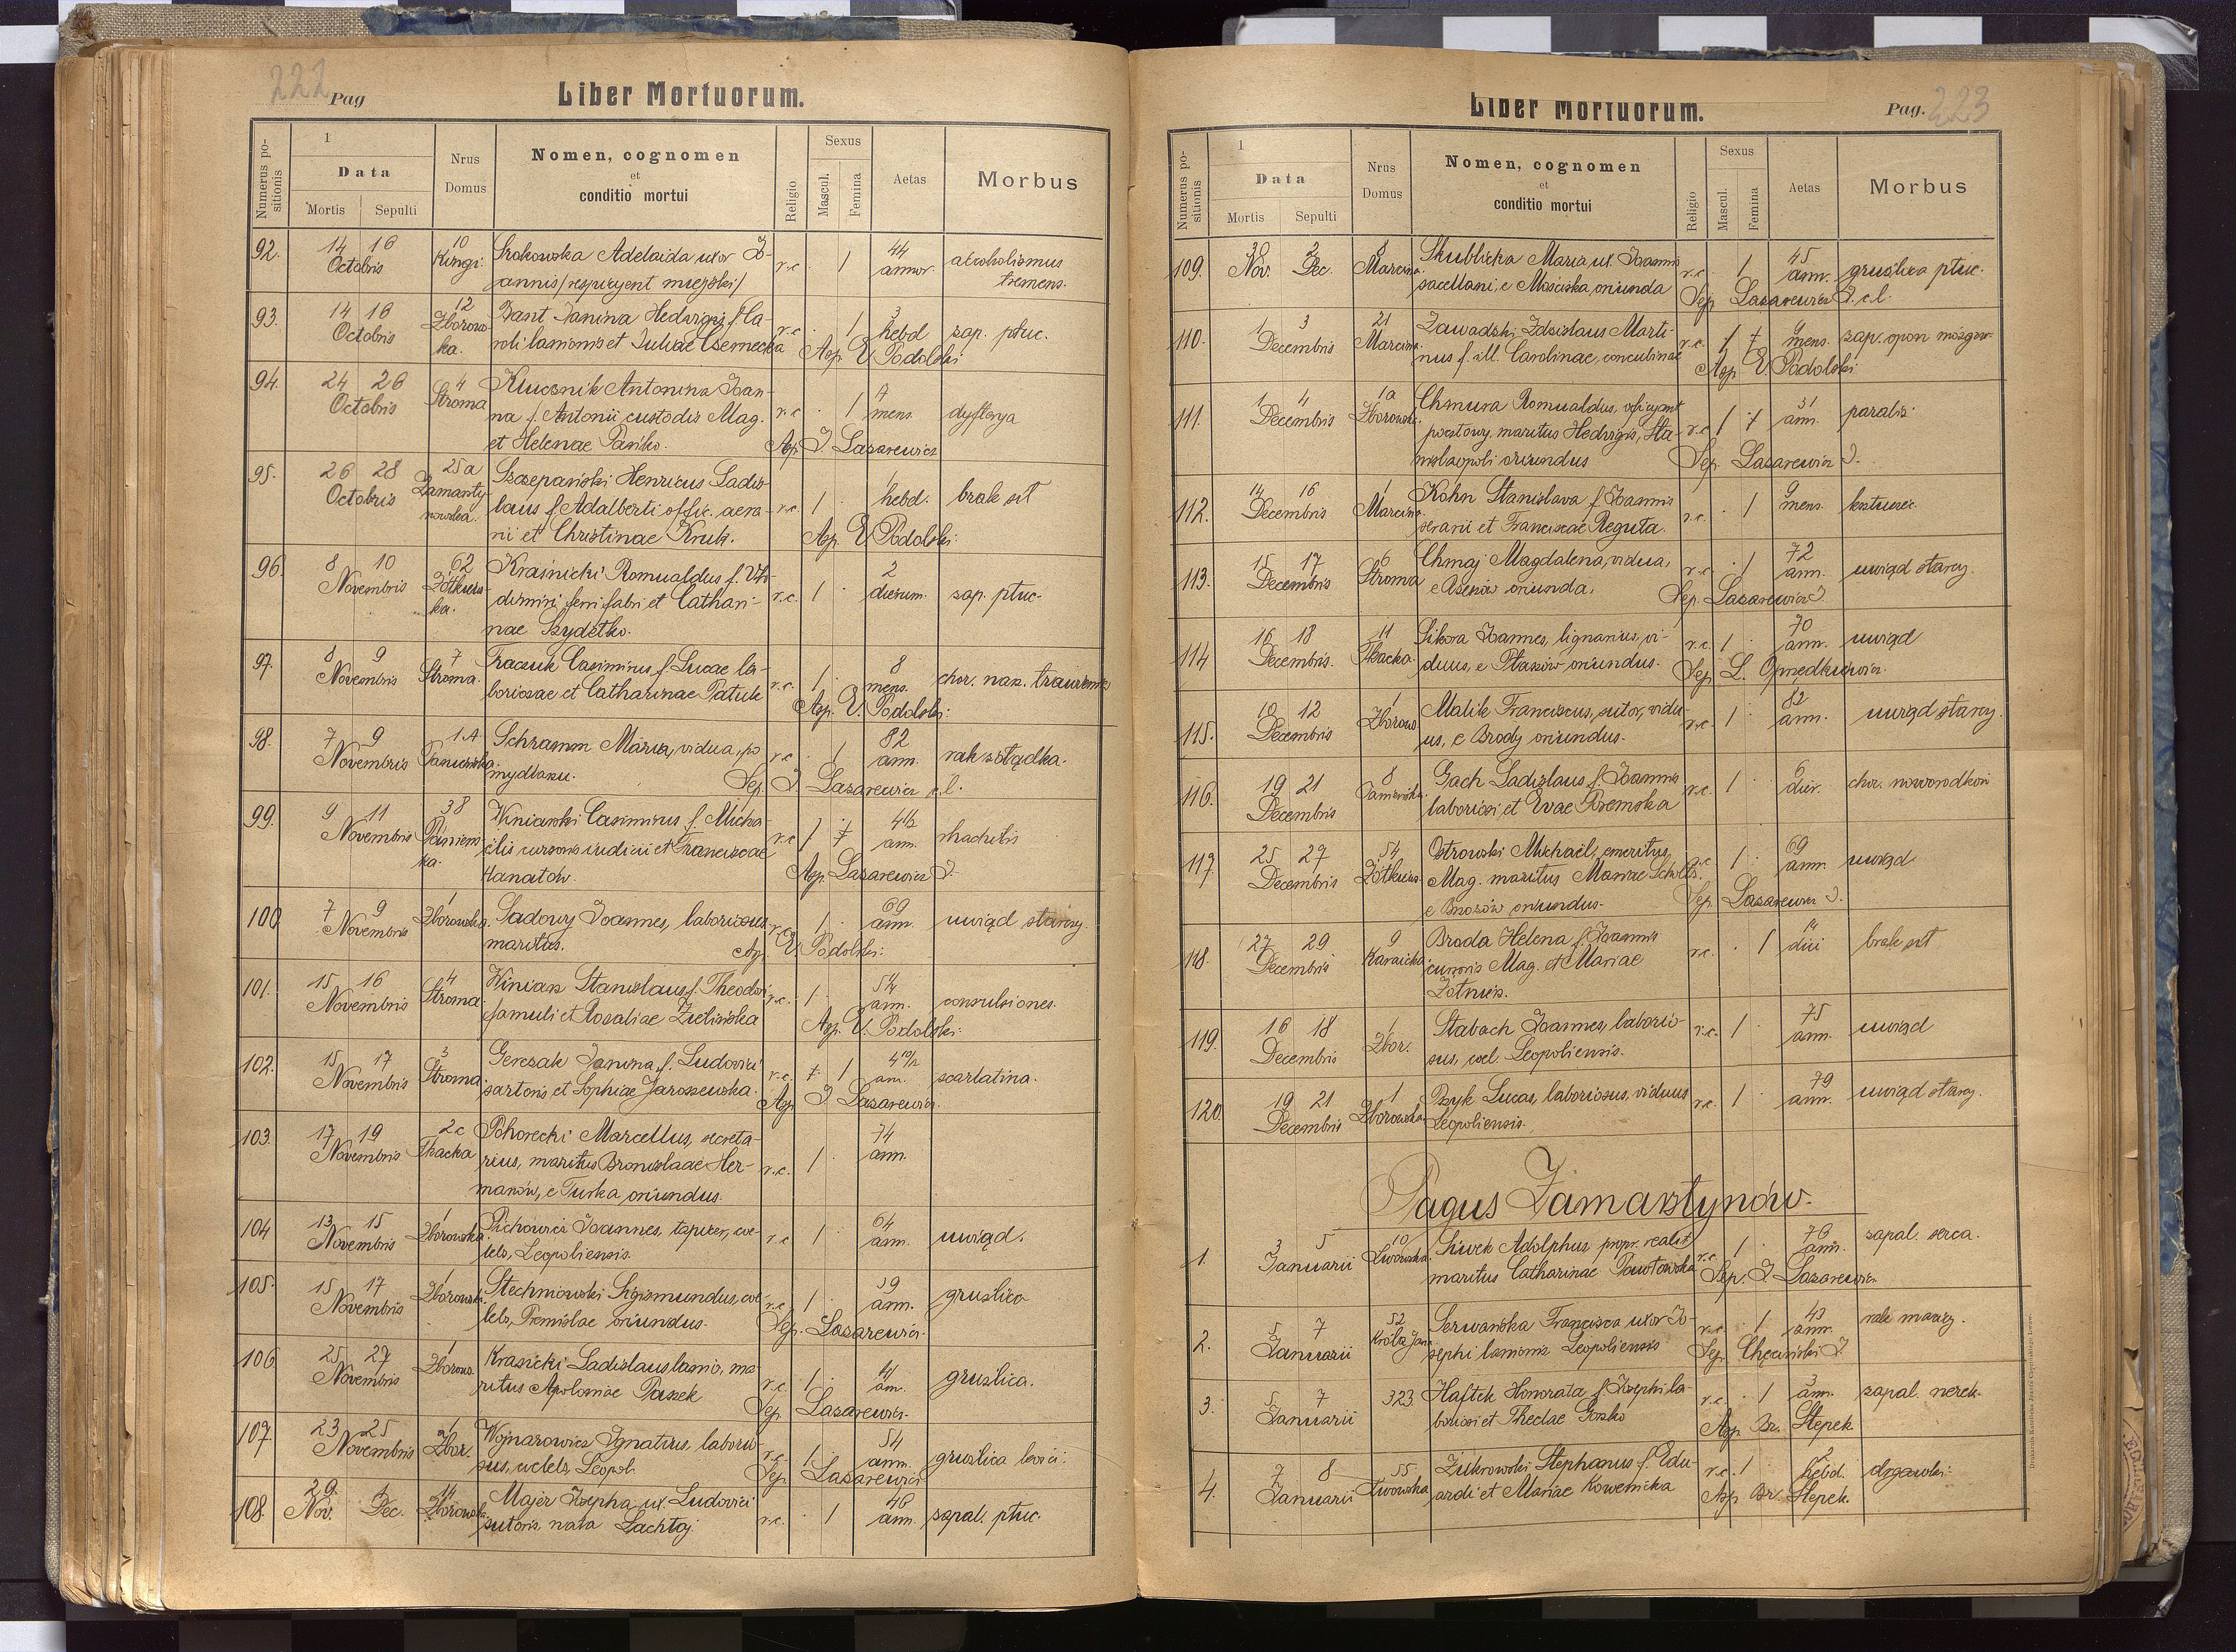 222 Pag
Liber Mortuorum.
Numerus positionis
1
Data
Mortis Sepulti
Nrus Domus
Nomen, cognomen
et
conditio mortui
Religio
Sexus
Mascul. Femina
Aetas
Morbus
92. 14 16 10 44
Octobris Kingi Adelaida uxor Jo- r.c. 1 annor. alcoholismus
annis /respicyent miejski/ tremens.
93. 14 16 12 3
Octobris Zborowska. Bant Janina Hedvigis f. Ca- r.c. 1 hebd zap. płuc.
roli lanionis et Juliae Czernecka Asp. V. Podolski
94. 24 26 4
Octobris Stroma Klucznik Antonina Joan-
na f. Antonii custodis Mag. r.c. 1 mens. dyfterya
et Helenae Pańko. Asp. J. Lazarewicz
95. 26 28 25a Szczepański Henricus Ladis- 1
Octobris laus f. Adalberti offic. aera- r.c. 1 hebd. brak sił
rii et Christinae Kruk. Asp. V. Podolski
96. 8 10 62 Kraśnicki Romualdus f. Vla- 2
Novembris Żółkiewska. dimiri ferri fabri et Cathari- r.c. 1 dierum. zap. płuc.
nae Szydełko.
97. 8 9 7 Traczuk Casimirus f. Lucae la- 8
Novembris Stroma. boriosae et Catharinae Patuk r.c. 1 mens.
Asp. V. Podolski
98. 7 9 1.A Schramm Maria, vidua, po r.c. 1 82
Novembris Panieńska. mydlarzu. ann. rak żołądka.
Sep. J. Lazarewicz e.l.
99. 9 11 38 Winiarski Casimirus f. Micha- 4½
Novembris elis cursoris iudicii et Franciscae r.c. 1 ann. rhachitis
Hanatów. Asp. Lazarewicz J.
100 7 9 1 Sadowy Joannes, laboriosus 69
Novembris Zborowska. maritus. r.c. 1 ann. uwiąd starczy.
Asp. V. Podolski
101. 15 16 4 Winiarz Stanislaus f. Theodori r.c. 1 54
Novembris Stroma. famuli et Rosaliae Zielińska ann. convulsiones.
Asp. V. Podolski
102. 15 17 3 Gerczak Janina f. Ludovici 4 10/12
Novembris Stroma. sartoris et Sophiae Jaroszewska r.c. 1 an. scarlatina.
Asp. J. Lazarewicz.
103. 17 19 2c Pohorecki Marcellus, secreta- 74
Novembris Tkacka rius, maritus Bronislaae Her- r.c. 1 ann.
manów, e Turka oriundus.
104 13 15 1 Pichowicz Joannes, tapicer, cae- 64
Novembris Zborowska lebs, Leopoliensis. r.c. 1 ann. uwiąd.
105. 15 17 1 Stechniowski Sigismundus, cae- 59
Novembris Zborowska. lebs, Premislae oriundus. r.c. 1 ann. gruźlica
Sep. Lazarewicz.
106 25 27 1 Krasicki Ladislaus lanio, ma- 41
Novembris Zborows. ritus Apoloniae Paszek r.c. 1 an. gruźlica.
Sep. Lazarewicz.
107. 23 25 1 Wojnarowicz Ignatius, laborio- 54
Novembris Zbor. sus, caelebs, Leopol. r.c. 1 ann. gruźlica
Sep. Lazarewicz
108. 29 1 14 Majer Josepha ux. Ludovici 46
Nov. Dec. Zborowska. sutoris, nata Lachtaj r.c. 1 ann. zapal. płuc.
Liber Mortuorum.
Pag. 223
Numerus positionis
1
Data
Mortis Sepulti
Nrus Domus
Nomen, cognomen
et
conditio mortui
Religio
Sexus
Mascul. Femina
Aetas
Morbus
109. 30 2 8 Skublicka Maria ux. Joannis 45
Nov. Dec. Marcina. sacellani, e Mościska, oriunda r.c. 1 ann. gruźlica płuc.
Sep. Lazarewicz J. e.l.
110. 1 3 21 Zawadzki Zdzislaus Marti- 9
Decembris Marcina. nus f. ill. Carolinae, concubinae r.c. 1 mens. zap. opon mózgow.
Asp. V. Podolski
111. 1 4 1a Chmura Romualdus, oficyant 31
Decembris Zborowska. pocztowy, maritus Hedvigis, Sta- r.c. 1 ann. paraliż.
nislaopoli oriundus Sep. Lazarewicz J.
112. 14 16 1 Kohn Stanislava f. Joannis 9
Decembris Marcina. et Franciscae Reguta. r.c. 1 mens. koklusz.
113. 15 17 6 Chmaj Magdalena, vidua, 72
Decembris Stroma oriunda. r.c. 1 ann. uwiąd starcz.
Sep. Lazarewicz J.
114 16 18 11 Sikora Joannes, lignarius, vi- 70
Decembris. Tkacka. duus, e Płazów oriundus. r.c. 1 ann. uwiąd
Sep. L. Opędkiewicz.
115. 10 12 1 Malik Franciscus, sutor, vidu- 82
Decembris Zborows. us, e Brody oriundus. r.c. 1 ann. uwiąd starczy.
116. 19 21 8 Gach Ladislaus f. Joannis 6
Decembris Panieńska. laboriosi et Evae Poremska r.c. 1 dier. chor. noworodków
117. 25 27 54 Ostrowski Michaël, emeritus, 69
Decembris Żółkiews. Mag. maritus Mariae Scholtz. r.c. 1 ann. uwiąd
e Brzozów oriundus. Sep. Lazarewicz J.
118. 27 29 9 Broda Helena f. Joannis 14
Decembris Karaicka. cursoris Mag. et Mariae r.c. 1 dni brak sił
Żołnierz.
119. 16 18 1 Stabach Joannes, laborio- 75
Decembris Zbor. sus, cael. Leopoliensis. r.c. 1 ann. uwiąd
120. 19 21 1 Pszyk Lucas, laboriosus, viduus 79
Decembris Zborowska Leopoliensis. r.c. 1 ann. uwiąd starcz.
Pagus Zamarstynów.
1. 3 5 10 Siwek Adolphus propr. realit 76
Januarii Lwowska. maritus Catharinae Pawłowska r.c. 1 ann. zapal. serca.
Sep. J. Lazarewicz
2. 5 7 52 Serwańska Francisca uxor Jo- 43
Januarii Króla Jan. sephi lanionis Leopoliensis r.c. 1 ann. rak macicy.
Sep. Chęciński J.
3. 5 7 323 Haftek Honorata f. Josephi la- 3
Januarii boriosi et Theclae Gorzko r.c. 1 ann. zapal. nerek.
Asp. Br. Stepek
4. 7 8 55. Żukrowski Stephanus f. Edu- 2
Januarii Lwowska ardi et Mariae Kowenicka r.c. 1 hebd. drgawki.
Asp. Br. Stepek.